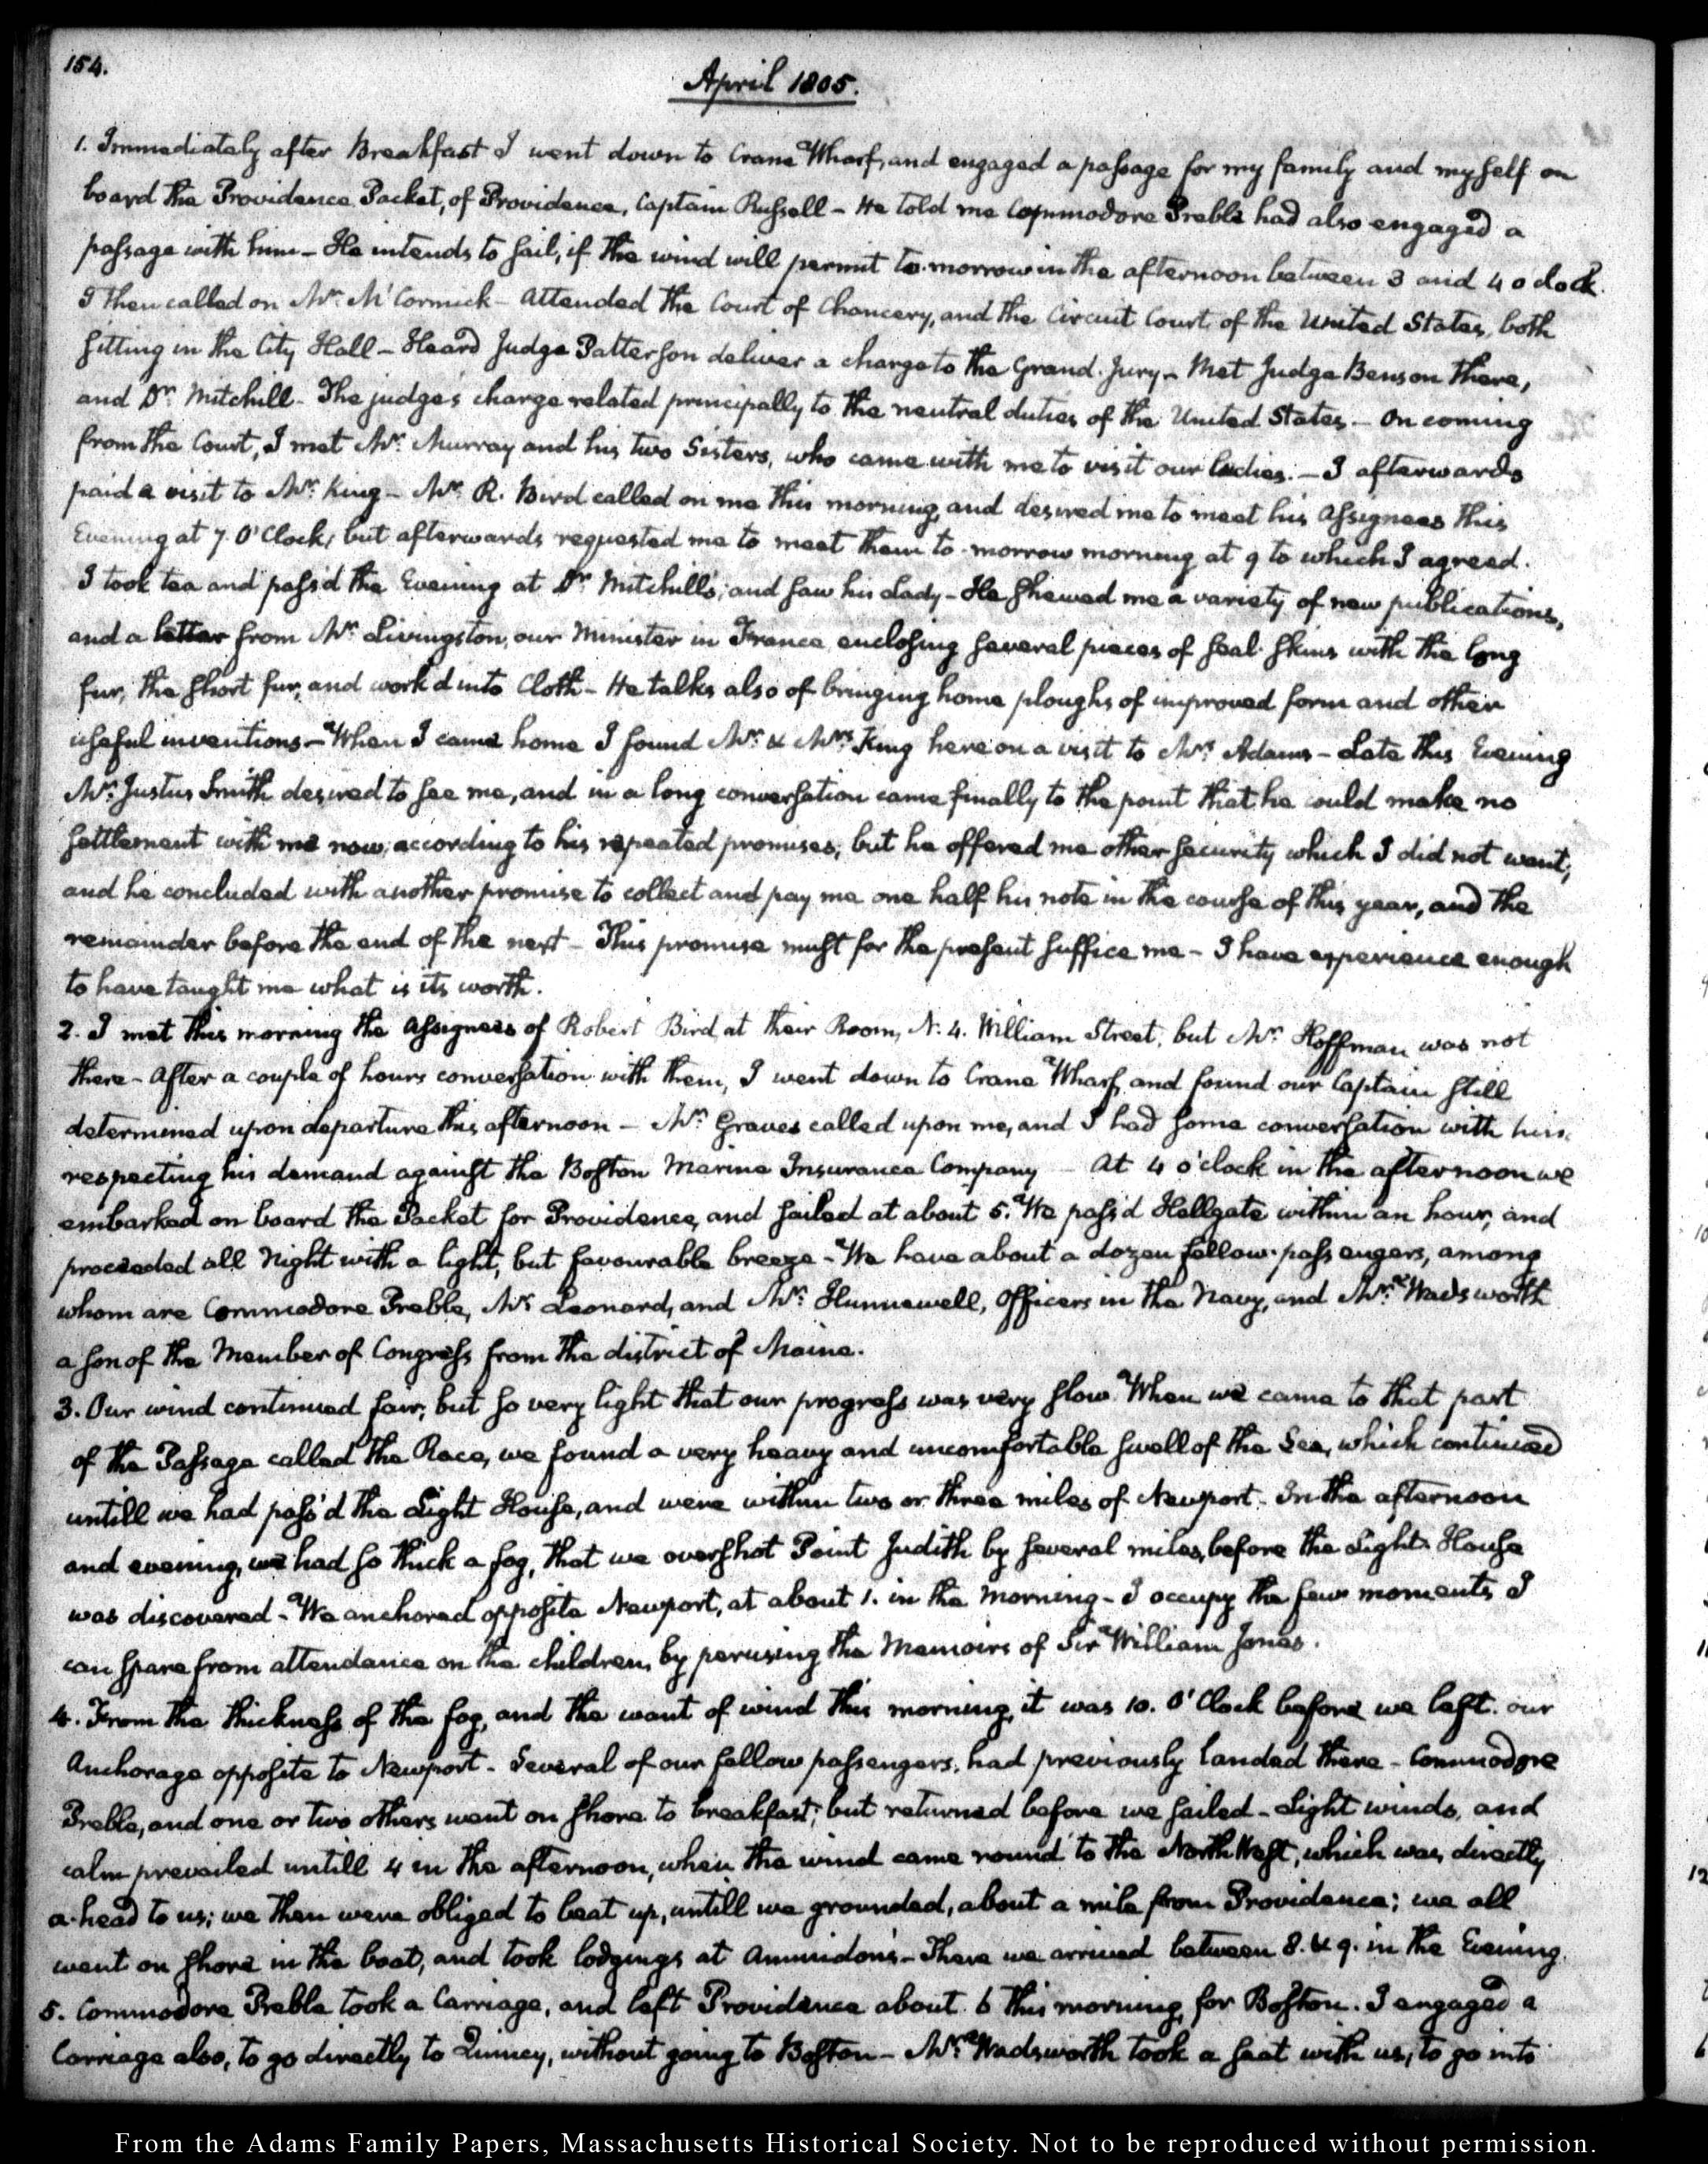 154.
April 1805.
1. Immediately after Breakfast I went down to Crane Wharf, and engaged a passage for my family and myself on
board the Providence Packet, of Providence, Captain Russell - He told me Commodore Preble had also engaged a
passage with him - He intends to sail, if the wind will permit to-morrow in the afternoon between 3 and 4 o clock.
I then called on Mr. M'Cormick - Attended the Court of Chancery, and the Circuit Court of the United States, both
sitting in the City Hall - Heard Judge Patterson deliver a charge to the Grand-Jury - Met Judge Benson there,
and Dr. Mitchill - The judge's charge related principally to the neutral duties of the United States - On coming
from the Court, I met Mr. Murray and his two Sisters, who came with me to visit our ladies. - I afterwards
paid a visit to Mr. King - Mr. R. Bird called on me this morning, and desired me to meet his Assignees this
Evening at 7. O'Clock, but afterwards requested me to meet them to-morrow morning at 9 to which I agreed.
I took tea and pass'd the Evening at Dr. Mitchill's; and saw his Lady - He shewed me a variety of new publications,
and a letter from Mr. Livingston, our Minister in France enclosing several pieces of seal-skins with the long
fur, the short fur, and work'd into Cloth - He talks also of bringing home ploughs of improved form and other
useful inventions - When I came home I found Mr. & Mrs. King here on a visit to Mrs. Adams - Late this Evening
Mr. Justus Smith desired to see me, and in a long conversation came finally to the point that he could make no
settlement with me now, according to his repeated promises, but he offered me other security which I did not want,
and he concluded with another promise to collect and pay me one half his note in the course of this year, and the
remainder before the end of the next - This promise must for the present suffice me - I have experience enough
to have taught me what is its worth.
2. I met this morning the Assignees of Robert Bird, at their Room, N. 4. William Street, but Mr. Hoffman was not
there - After a couple of hours conversation with them, I went down to Crane Wharf, and found our Captain still
determined upon departure this afternoon - Mr. Graves called upon me, and I had some conversation with him
respecting his demand against the Boston Marine Insurance Company - At 4 o'clock in the afternoon we
embarked on board the Packet for Providence, and sailed at about 5. We pass'd Hellgate within an hour, and
proceeded all Night with a light, but favourable breeze - We have about a dozen fellow-passengers, among
whom are Commodore Preble, Mr. Leonard, and Mr. Hunnewell, Officers in the Navy, and Mr. Wadsworth
a son of the Member of Congress from the district of Maine.
3. Our wind continued fair, but so very light that our progress was very slow. When we came to that part
of the Passage called the Race, we found a very heavy and uncomfortable swell of the Sea, which continued
untill we had pass'd the Light House, and were within two or three miles of Newport. In the afternoon
and evening, we had so thick a fog, that we overshot Point Judith by several miles, before the Light-House
was discovered - We anchored opposite Newport, at about 1. in the Morning - I occupy the few moments I
can spare from attendance on the children, by perusing the Memoirs of Sir William Jones.
4. From the thickness of the fog, and the want of wind this morning, it was 10. O'Clock before we left our
Anchorage opposite to Newport - Several of our fellow passengers, had previously landed there - Commodore
Preble, and one or two others went on shore to breakfast; but returned before we sailed - Light winds, and
calm prevailed untill 4 in the afternoon, when the wind came round to the North West, which was directly
a-head to us; we then were obliged to beat up, untill we grounded, about a mile from Providence; we all
went on shore in the boat, and took lodgings at Ammidon's - There we arrived between 8. & 9. in the Evening.
5. Commodore Preble took a Carriage, and left Providence about 6 this morning, for Boston. I engaged a
Carriage also, to go directly to Quincy, without going to Boston - Mr. Wadsworth took a seat with us, to go into
From the Adams Family Papers, Massachusetts Historical Society. Not to be reproduced without permission.